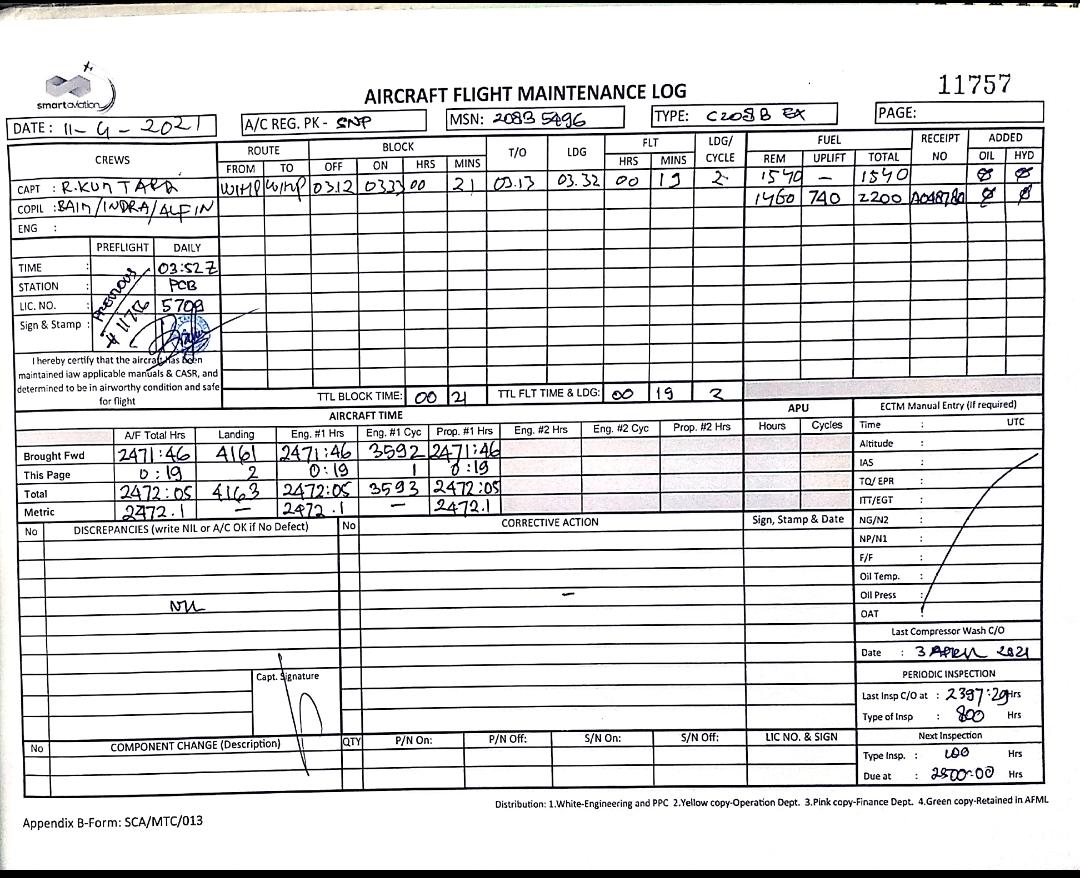 smartaviation
AIRCRAFT FLIGHT MAINTENANCE LOG
11757
DATE : 11-4-2021 A/C REG. PK - SNP MSN: 208B 5496 TYPE: C208B EX PAGE:
CREWS ROUTE BLOCK T/O LDG FLT LDG/ CYCLE FUEL RECEIPT NO ADDED
FROM TO OFF ON HRS MINS HRS MINS REM UPLIFT TOTAL OIL HYD
CAPT : R.KUNTARA WIHP WIHP 03.12 03.33 00 21 03.13 03.32 00 19 2 1540 – 1540 Ø Ø
COPIL : /INDRA/ALFIN 1460 740 2200 A048780 Ø Ø
ENG :
PREFLIGHT DAILY
TIME : 03:52Z
STATION : PCB
LIC. NO. : 5709
Sign & Stamp :
PREVIOUS
# 11756
I hereby certify that the aircraft has been
maintained iaw applicable manuals & CASR, and
determined to be in airworthy condition and safe
for flight
TTL BLOCK TIME: 00 21 TTL FLT TIME & LDG: 00 19 2
AIRCRAFT TIME APU
A/F Total Hrs Landing Eng. #1 Hrs Eng. #1 Cyc Prop. #1 Hrs Eng. #2 Hrs Eng. #2 Cyc Prop. #2 Hrs Hours Cycles
Brought Fwd 2471:46 4161 2471:46 3592 2471:46
This Page 0:19 2 0:19 1 0:19
Total 2472:05 4163 2472:05 3593 2472:05
Metric 2472.1 – 2472.1 – 2472.1
ECTM Manual Entry (if required)
Time : UTC
Altitude :
IAS :
TQ/ EPR :
ITT/EGT :
NG/N2 :
NP/N1 :
F/F :
Oil Temp. :
Oil Press :
OAT :
No DISCREPANCIES (write NIL or A/C OK if No Defect) No CORRECTIVE ACTION Sign, Stamp & Date
NIL –
Capt. Signature
Last Compressor Wash C/O
Date : 3 APRIL 2021
PERIODIC INSPECTION
Last Insp C/O at : 2397:29 Hrs
Type of Insp : 800 Hrs
Next Inspection
Type Insp. : 100 Hrs
Due at : 2500:00 Hrs
No COMPONENT CHANGE (Description) QTY P/N On: P/N Off: S/N On: S/N Off: LIC NO. & SIGN
Distribution: 1.White-Engineering and PPC 2.Yellow copy-Operation Dept. 3.Pink copy-Finance Dept. 4.Green copy-Retained in AFML
Appendix B-Form: SCA/MTC/013